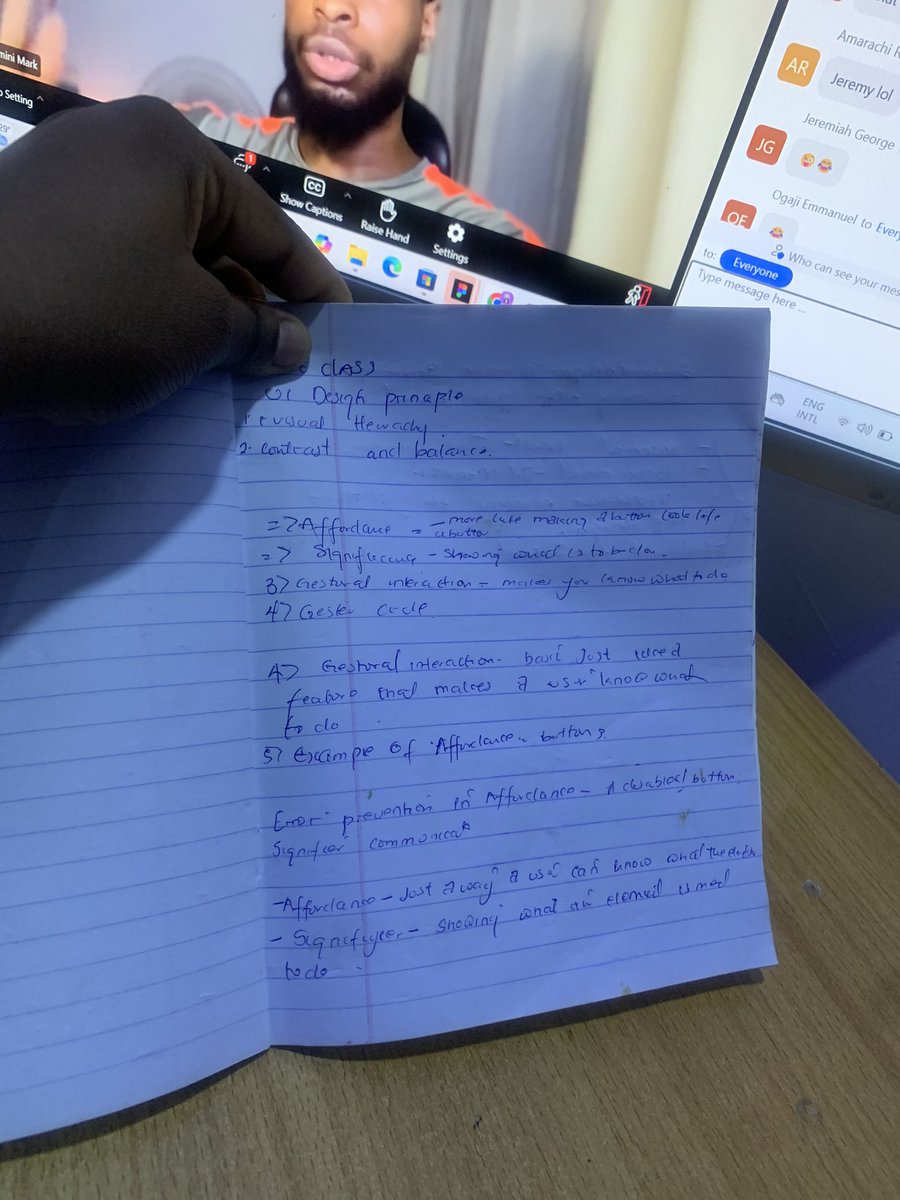 mini Mark
Setting
29°
1
CC
Show Captions
Raise Hand
Settings
Amarachi R
AR
Jeremy lol
Jeremiah George
JG
Ogaji Emmanuel to Every
OE
Who can see your mes
to: Everyone
Type message here ...
ENG
INTL
CLASS
UI Design prinaple
visual Hewachy
2. contrast and balance.
=> Affordance = - more like making a button look life
a button
=> - showing is to be
3> Gestural interaction - makes you know what to do
4> Gester code
4> Gestoral interaction- just
feature that makes a user know what
to do
5> Example of Affordance = buttons.
Error prevention in Affordance - A disabled button
Signifier
- Affordance - Just a way a user can know what the
- Signifyer - showing what an element is
to do